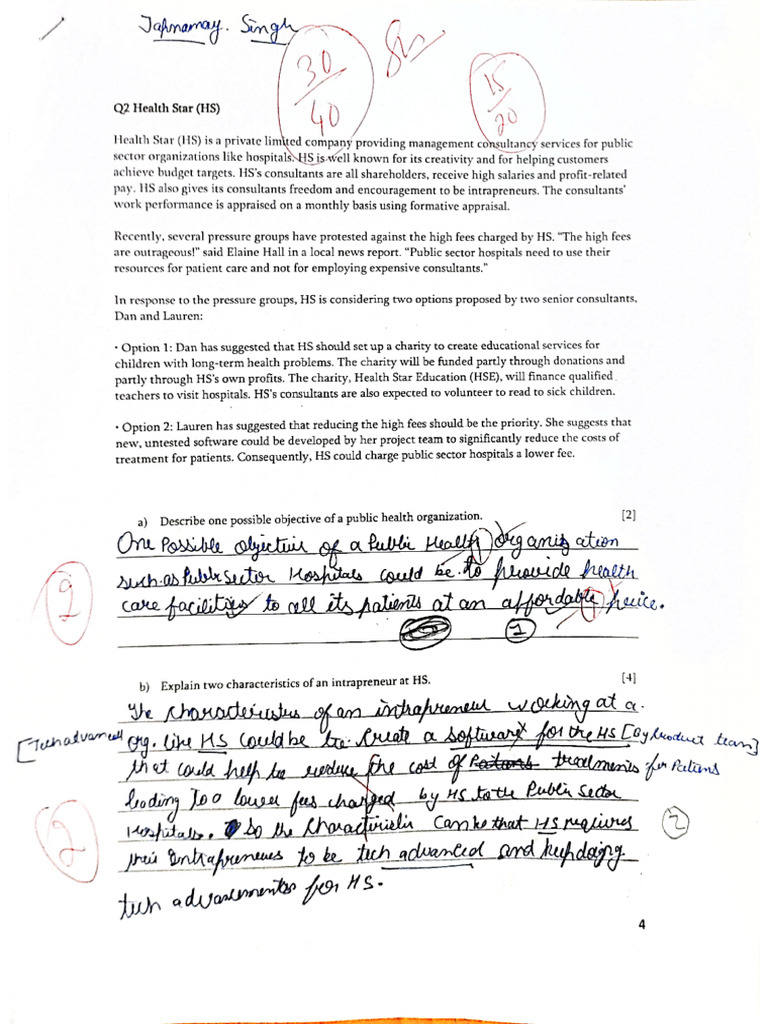 Japnamay. Singh
30/40
15/20
Q2 Health Star (HS)
Health Star (HS) is a private limited company providing management consultancy services for public
sector organizations like hospitals. HS is well known for its creativity and for helping customers
achieve budget targets. HS's consultants are all shareholders, receive high salaries and profit-related
pay. HS also gives its consultants freedom and encouragement to be intrapreneurs. The consultants'
work performance is appraised on a monthly basis using formative appraisal.
Recently, several pressure groups have protested against the high fees charged by HS. "The high fees
are outrageous!" said Elaine Hall in a local news report. "Public sector hospitals need to use their
resources for patient care and not for employing expensive consultants."
In response to the pressure groups, HS is considering two options proposed by two senior consultants,
Dan and Lauren:
· Option 1: Dan has suggested that HS should set up a charity to create educational services for
children with long-term health problems. The charity will be funded partly through donations and
partly through HS's own profits. The charity, Health Star Education (HSE), will finance qualified
teachers to visit hospitals. HS's consultants are also expected to volunteer to read to sick children.
· Option 2: Lauren has suggested that reducing the high fees should be the priority. She suggests that
new, untested software could be developed by her project team to significantly reduce the costs of
treatment for patients. Consequently, HS could charge public sector hospitals a lower fee.
a) Describe one possible objective of a public health organization. [2]
One Possible objective of a Public Health organization
such as Public Sector Hospitals could be to provide health
care facilities to all its patients at an affordable price.
2
1
b) Explain two characteristics of an intrapreneur at HS. [4]
The characteristics of an intrapreneur working at a
[Tech advanced] org. like HS could be to create a software for the HS [By Product team]
that could help to reduce the cost of treatments for Patients
leading to lower fees charged by HS to the Public Sector
Hospitals. So the Characteristic can be that HS requires 2
their intrapreneurs to be tech advanced and keep doing
tech advancements for HS.
2
4